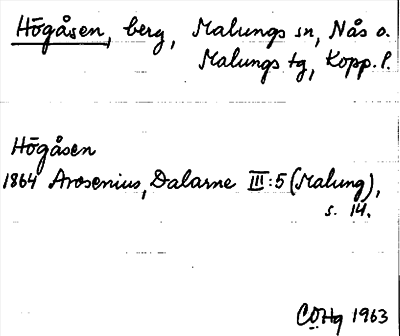 Högåsen, berg, Malungs sn, Nås o.
Malungs tg, Kopp. l.
Högåsen
1864 Arosenius, Dalarne III:5 (Malung),
s. 14.
COHg 1963